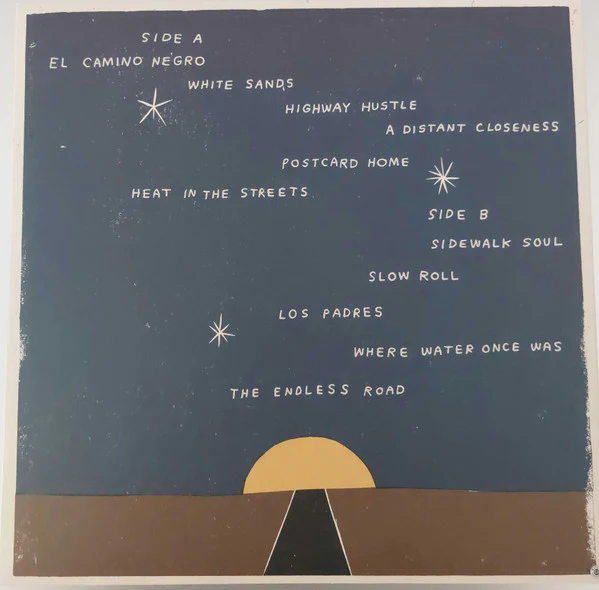 SIDE A
EL CAMINO NEGRO
WHITE SANDS
HIGHWAY HUSTLE
A DISTANT CLOSENESS
POSTCARD HOME
HEAT IN THE STREETS
SIDE B
SIDEWALK SOUL
SLOW ROLL
LOS PADRES
WHERE WATER ONCE WAS
THE ENDLESS ROAD